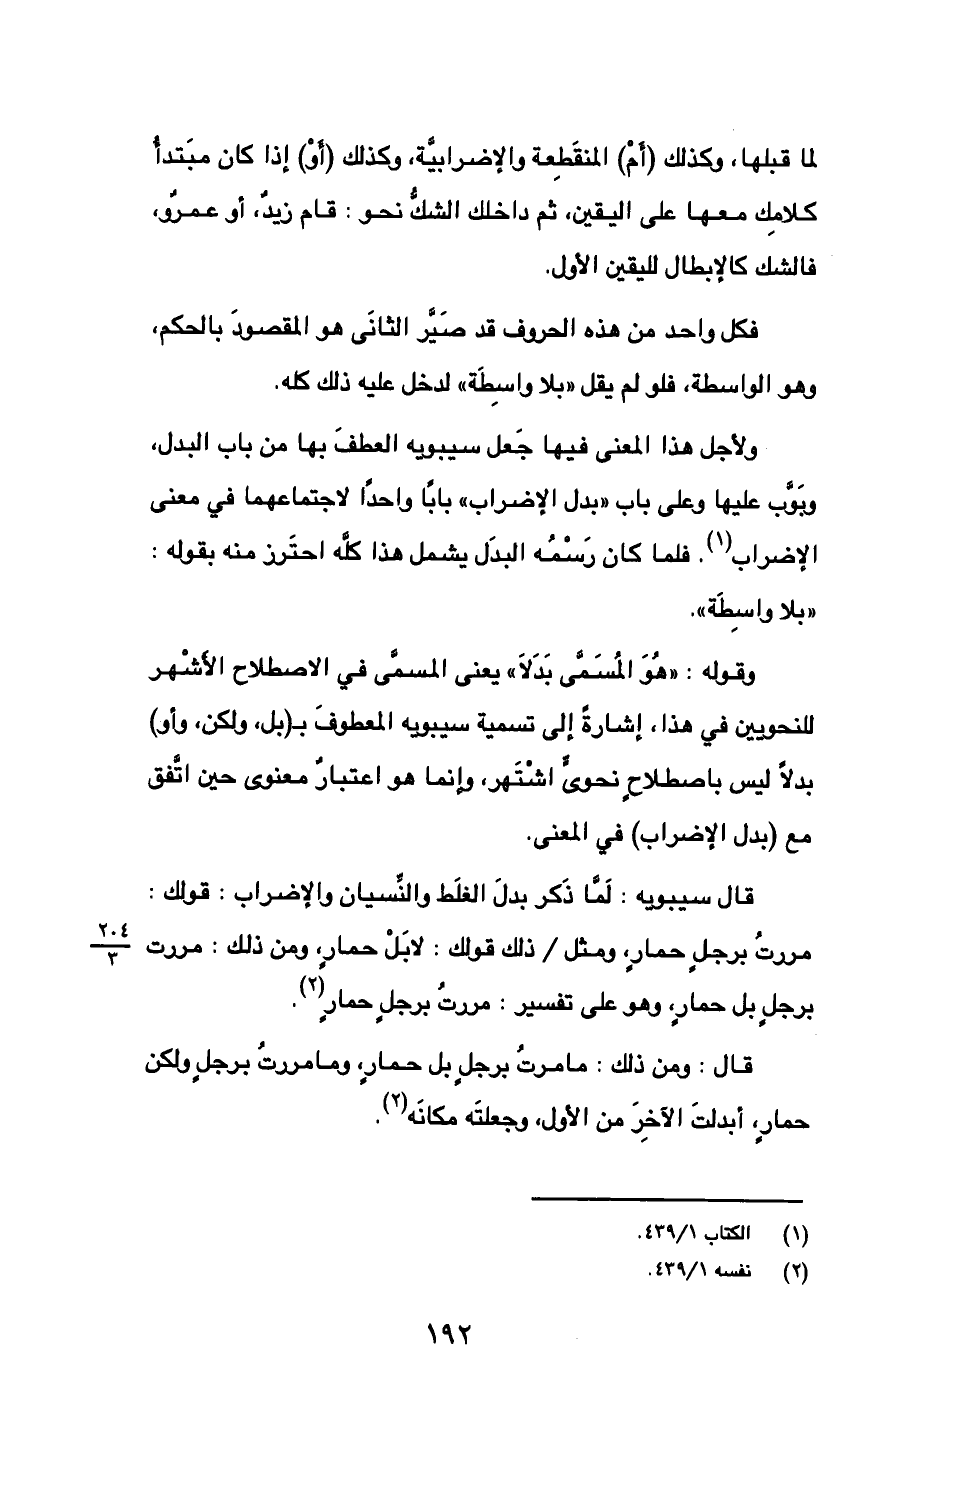 لما قبلها، وكذلك (أَمْ) المنقَطِعة والإضرابيَّة، وكذلك (أَوْ) إذا كان مبَتدأُ
كلامِك معها على اليقين، ثم داخلك الشكُّ نحو : قام زيدٌ، أو عمرٌو،
فالشك كالإبطال لليقين الأول.
فكل واحد من هذه الحروف قد صَيَّر الثانَى هو المقصودَ بالحكم،
وهو الواسطة، فلو لم يقل «بلا واسِطَة» لدخل عليه ذلك كله.
ولأجل هذا المعنى فيها جَعل سيبويه العطفَ بها من باب البدل،
وبَوَّب عليها وعلى باب «بدل الإضراب» بابًا واحدًا لاجتماعهما في معنى
الإضراب(١). فلما كان رَسْمُه البدَل يشمل هذا كلَّه احتَرز منه بقوله :
«بلا واسِطَة».
وقوله : «هُوَ المُسَمَّى بَدَلاَ» يعنى المسمَّى في الاصطلاح الأشْهر
للنحويين في هذا، إشارةً إلى تسمية سيبويه المعطوفَ بـ(بل، ولكن، وأو)
بدلاً ليس باصطلاحٍ نحوىٍّ اشْتَهر، وإنما هو اعتبارٌ معنوى حين اتَّفق
مع (بدل الإضراب) في المعنى.
قال سيبويه : لَمَّا ذَكر بدلَ الغلَط والنِّسيان والإضراب : قولك :
مررتُ برجلٍ حمارٍ، ومثل / ذلك قولك : لابَلْ حمارٍ، ومن ذلك : مررت
٢٠٤
٣
برجلٍ بل حمارٍ، وهو على تفسير : مررتُ برجلٍ حمارٍ(٢).
قال : ومن ذلك : مامرتُ برجلٍ بل حمارٍ، ومامررتُ برجلٍ ولكن
حمارٍ، أبدلتَ الآخِرَ من الأول، وجعلتَه مكانَه(٢).
(١) الكتاب ٤٣٩/١.
(٢) نفسه ٤٣٩/١.
١٩٢